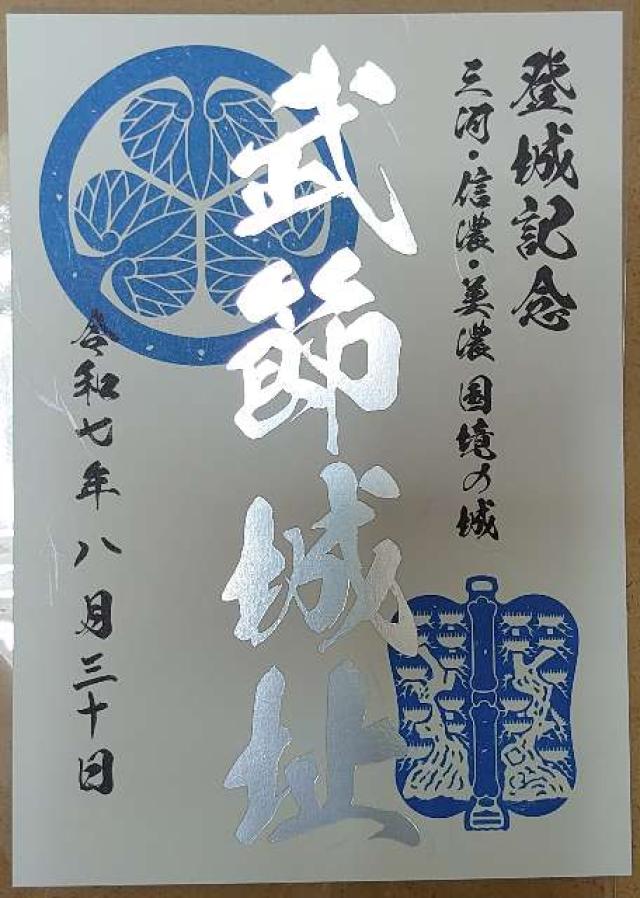 登城記念
三河・信濃・美濃 国境の城
武節城址
令和七年 八月三十日